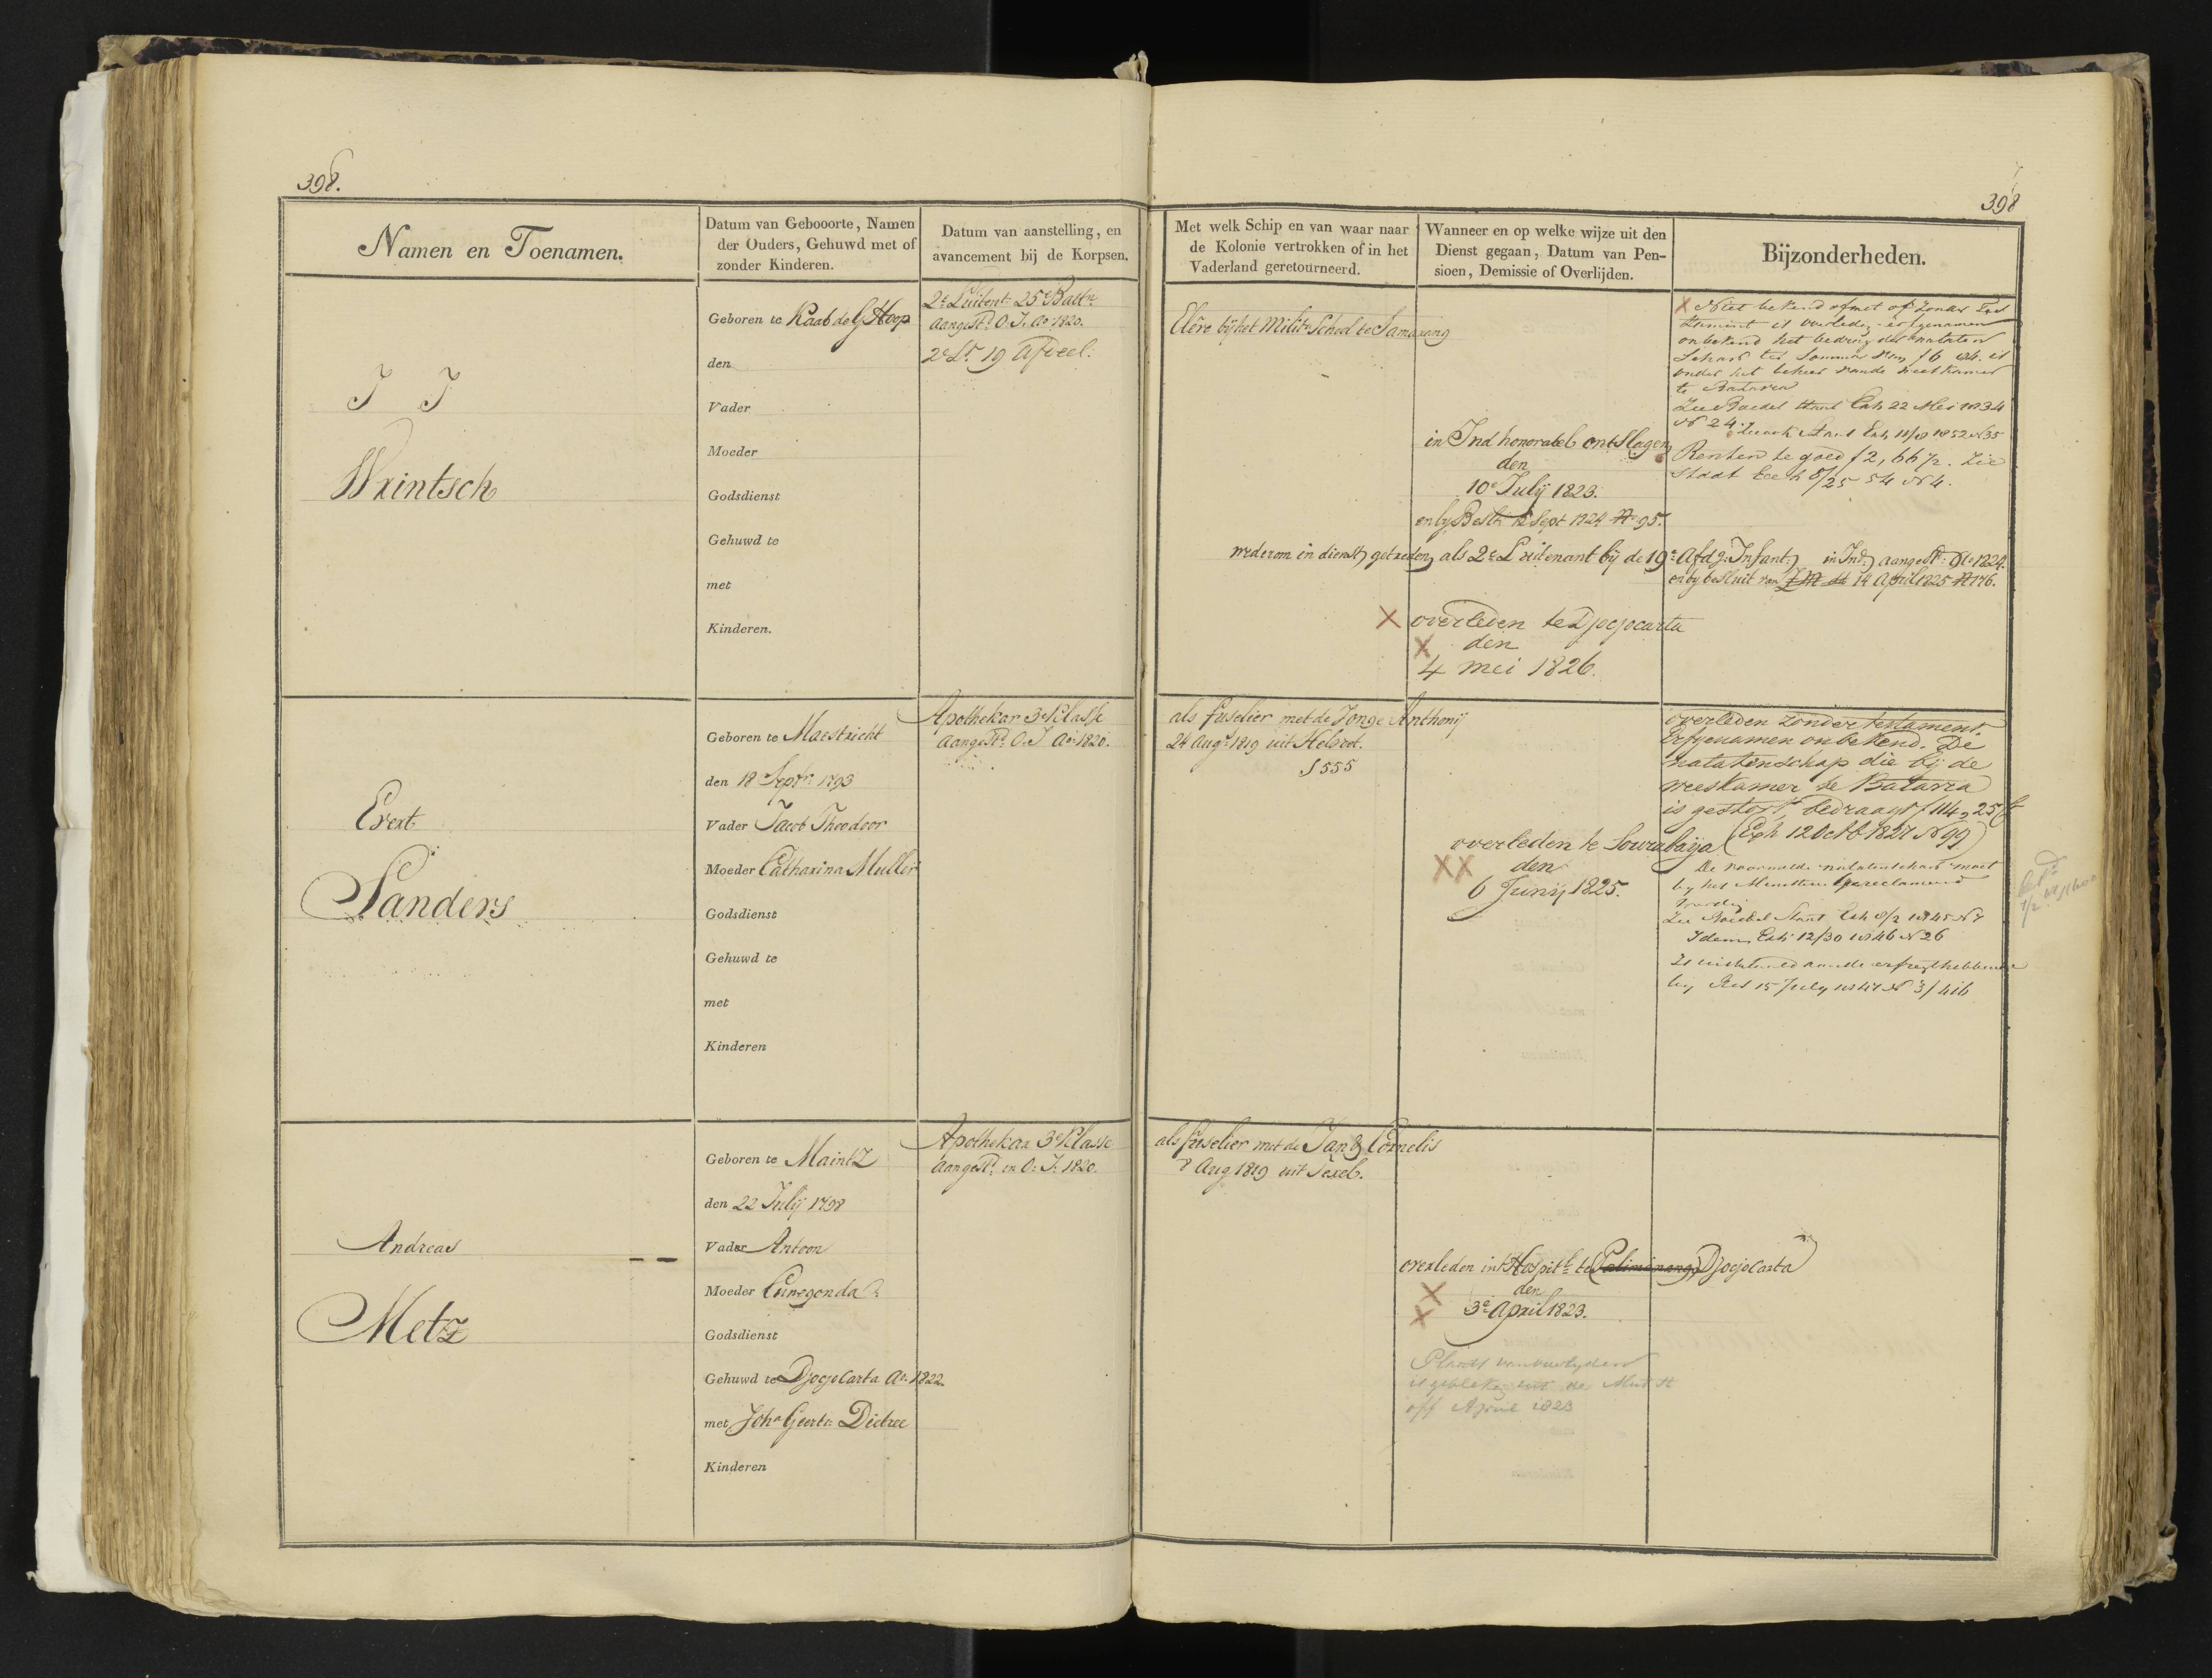 398.
398
Namen en Toenamen.
Datum van Gebooorte, Namen
der Ouders, Gehuwd met of
zonder Kinderen.
Datum van aanstelling, en
avancement bij de Korpsen.
Met welk Schip en van waar naar
de Kolonie vertrokken of in het
Vaderland geretourneerd.
Wanneer en op welke wijze uit den
Dienst gegaan, Datum van Pen-
sioen, Demissie of Overlijden.
Bijzonderheden.
J J
Wrintsch
Geboren te Kaab de G Hoop
den
Vader
Moeder
Godsdienst
Gehuwd te
met
Kinderen.
2e Luitent 25e Battn
aangestd O. J. Ao 1820.
2e Lt 19 Afdeel:
Eléve bij het Milite School te Samarang
in Ind honorabel ontslagen
den
10e Julij 1823.
en by Beslt 12 Sept 1824 No 95.
wederom in dienst getreden als 2e Luitenant bij de 19e Afdg: Infant: in Ind: aangestd: Ao 1824.
en by besluit van 14 April 1825 No 176.
X overleden te Djocjocarta
X den
4 mei 1826.
X Niet bekend of met of zonder Tes
tament is overleden erfgenamen
onbekend het bedrag der nalaten
Schap ter Somma van f 6 84. is
onder het beheer van de weeskamer
te Batavia
Zie Boedel Staat Exh 22 Mei 1834
No 24.
Zie ook Staat Exh 11/8 1852 N 35
Renten te goed f 2,66 1/2. Zie
Staat Exh 8/25 54 No 4.
Evert
Sanders
Geboren te Maestricht
den 18 Septr: 1793
Vader Jacob Theodoor
Moeder Catharina Muller
Godsdienst
Gehuwd te
met
Kinderen
Apothekar 3e Klasse
aangestd O. J Ao 1820.
als fuselier met de Jonge Anthonij
24 Augs 1819 uit Helvoet.
S 555
overleden te Sourabaija
XX den
6 Junij 1825.
overleden zonder testament.
Erfgenamen onbekend. De
nalatenschap die bij de
weeskamer te Batavia
is gestort, bedraagt f 114,25
(Exh 12 Octb 1827 No 99)
De voormelde nalatenschap moet
by het Ministerie gereclameerd
worden
Zie Boedel Staat Exh 8/2 1845 No 7
Idem Exh 12/30 1846 No 26
Is uitbetaald aan de erfregthebbenden
by Res 15 July 1847 No 3/416
Andreas
Metz
Geboren te Maintz
den 22 Julij 1798
Vader Antoon
Moeder Cunegonda
Godsdienst
Gehuwd te Djocjocarta Ao 1822
met Joha Geertr: Dietree
Kinderen
Apothekar 3e Klasse
aangestd: in O: J: 1820.
als fuselier met de Jan & Cornelis
7 Aug 1819 uit Texel.
overleden int Hospitl te Palimanang Djocjocarta
X den
X 3e April 1823.
Plaats van overlyden
is gebleken uit de Must St
off April 1823